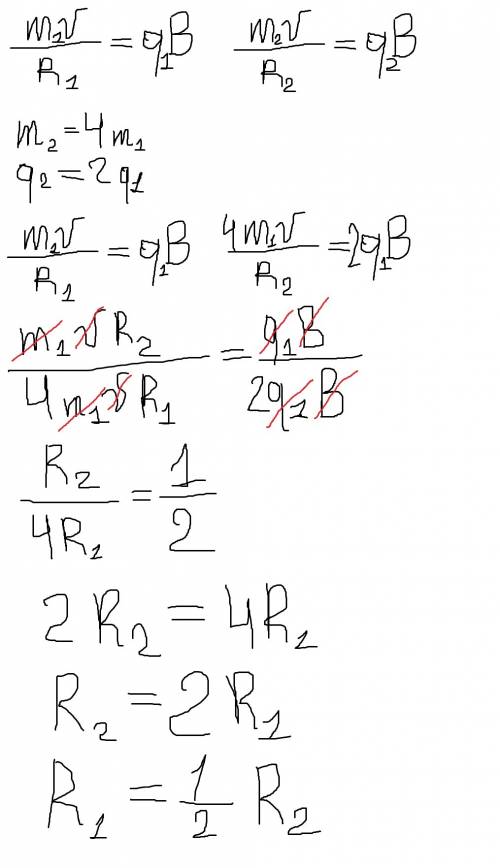 m₁v/R₁ = q₁B   m₂v/R₂ = q₂B
m₂ = 4m₁
q₂ = 2q₁
m₁v/R₁ = q₁B   4m₁v/R₂ = 2q₁B
m₁vR₂/4m₁vR₁ = q₁B/2q₁B
R₂/4R₁ = 1/2
2R₂ = 4R₁
R₂ = 2R₁
R₁ = 1/2 R₂